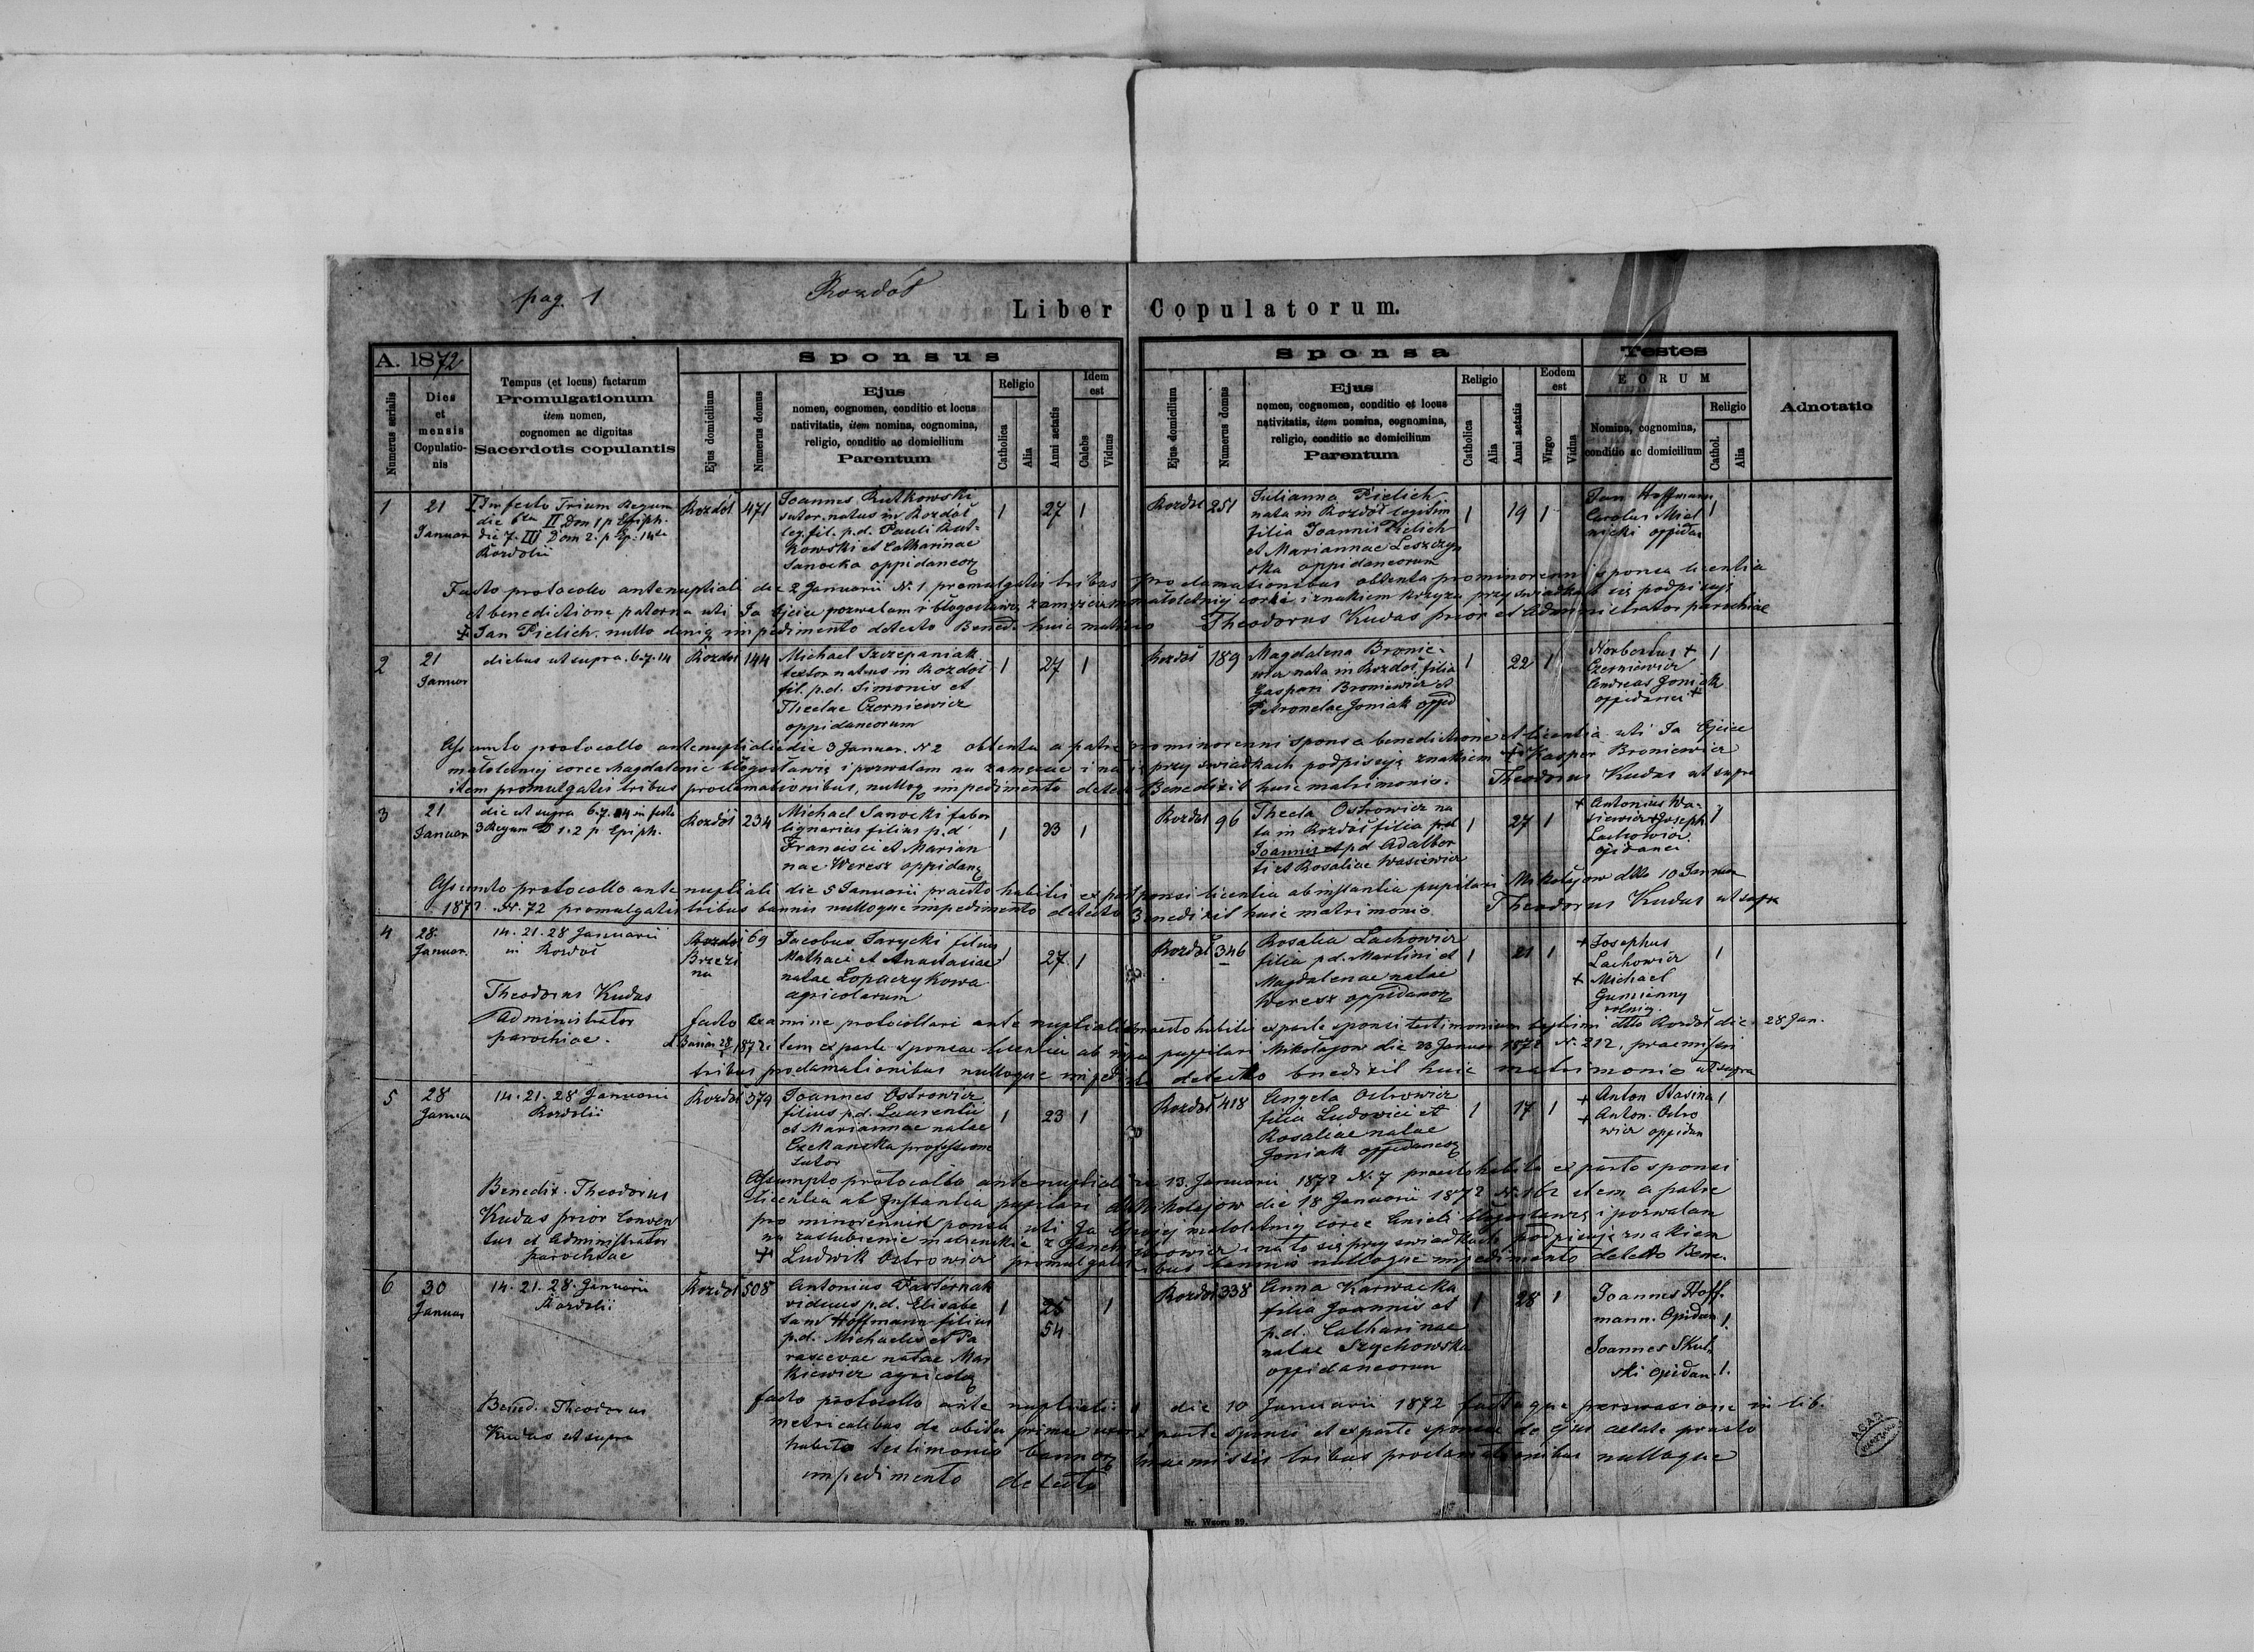 pag. 1
Rozdół
Liber Copulatorum.
A. 1872
Numerus serialis
Dies et mensis Copulationis
Tempus (et locus) factarum
Promulgationum
item nomen,
cognomen ac dignitas
Sacerdotis copulantis
Sponsus
Ejus domicilium
Numerus domus
Ejus
nomen, cognomen, conditio et locus
nativitatis, item nomina, cognomina,
religio, conditio ac domicilium
Parentum
Religio
Catholica
Alia
Anni aetatis
Idem est
Caelebs
Viduus
Sponsa
Ejus domicilium
Numerus domus
Ejus
nomen, cognomen, conditio et locus
nativitatis, item nomina, cognomina,
religio, conditio ac domicilium
Parentum
Religio
Catholica
Alia
Anni aetatis
Eodem est
Virgo
Vidua
Testes
EORUM
Nomina, cognomina,
conditio ac domicilium
Religio
Cathol.
Alia
Adnotatio
1
21
Januar
I In festo Trium Regum
die 6ta II Dom 1 p Epiph.
die 7. III Dom 2. p Ep. 14ta
Rozdolii
Rozdół 471
Joannes Rutkowski
sutor natus in Rozdół
leg. fil. p.d. Pauli Rut-
kowski et Catharinae
Sanocka oppidaneor
1 27 1
Rozdół 251
Julianna Pielich
nata in Rozdół legitim
filia Joannis Pielich
et Mariannae Leszczyn
ska oppidaneorum
1 19 1
Jan Hoffmann
Carolus Miel
nicki oppidan
1
Facto protocollo antenuptiali die 2 Januarii N. 1 promulgatis tribus proclamationibus obtenta pro minorenni sponsa licentia
et benedictione paterna uti Ja Ojciec pozwalam i błogosławię zamęściu małoletniej córki i znakiem krzyża przy swiadkach się podpisuję
+ Jan Pielich. nullo deniq impedimento detecto Bened. huic matrimo Theodorus Kudas prior et Administrator parochiae
2
21
Januar
diebus ut supra 6.7.14
Rozdół 144
Michael Szczepaniak
textor natus in Rozdół
fil. p.d. Simonis et
Theclae Czerniewicz
oppidaneorum
1 27 1
Rozdół 189
Magdalena Bronie-
wicz nata in Rozdół filia
Gaspari Broniewicz et
Petronelae Joniak oppid
1 22 1
Norbertus +
Czerniewicz
Andreas Joniak
oppidanei +
1
Assumto protocollo antenuptiali die 3 Januar. N 2 obtenta a patre pro minorenni sponsa benedictione et licentia uti Ja Ojciec
małoletniej corce Magdalenie błogosławię i pozwalam na zamęscie i na to przy swiadkach podpisuję znakiem + Kasper Broniewicz
item promulgatis tribus proclamationibus, nulloq impedimento detecto Benedixit huic matrimonio. Theodorus Kudas ut supra
3
21
Januar
die ut supra 6.7.14 in festo
3 Regum D 1. 2 p Epiph.
Rozdół 234
Michael Sanocki faber
lignarius filius p.d.
Francisci et Marian
nae Weresz oppidan
1 23 1
Rozdół 96
Thecla Ostrowicz na
ta in Rozdół filia p.d
Joannis et p.d Adalber
ti et Rosaliae Wasiewicz
1 27 1
+ Antonius Wa-
siewicz + Joseph
Lachowicz
opidanei
1
Assumto protocollo ante nuptiali die 5 Januarii praesto habitis ex parte sponsi licentia ab instantia pupilari Mikołajow dtto 10 Januar
1872 N. 72 promulgatis tribus bannis nulloque impedimento detecto Benedixit huic matrimonio Theodorus Kudas ut supra
4
28.
Januar.
14. 21. 28 Januarii
in Rozdół
Theodorus Kudas
Administrator
parochiae.
Rozdół 69
Brzezi
na
Jacobus Sarycki filius
Mathaei et Anastasiae
natae Łopaczykowa
agricolarum
1 27 1
Rozdół 346
Rosalia Lachowicz
filia p.d. Martini et
Magdalenae natae
Weresz oppidaneor
1 21 1
+ Josephus
Lachowicz
+ Michael
Gumienny
rolnicy.
1
facto examine protocollari ante nuptiali praesto habitis ex parte sponsi testimonium baptismi dtto Rozdół die 28 Jan.
1872 item ex parte sponsae licentia ab pupilari Mikołajow die 23 Januar 1872 N. 212, praemissis
tribus proclamationibus nulloque imped detecto benedixit huic matrimonio ut supra
5
28
Januar
14. 21. 28 Januarii
Rozdolii
Benedix. Theodorus
Kudas prior Conven
tus et Administrator
parochiae
Rozdół 379
Joannes Ostrowicz
filius p.d. Laurentii
et Mariannae natae
Czekanska professione
sutor
1 23 1
Rozdół 418
Angela Ostrowicz
filia Ludovici et
Rosaliae natae
Joniak oppidaneor
1 17 1
+ Anton Stasina
+ Anton. Ostro
wicz oppidan
1
Assumpto protocollo antenuptiali die 13. Januarii 1872 N. 7 praesto habita ex parte sponsi
licentia ab Instantia pupilari Mikołajow die 18 Januarii 1872 N. 162 item a patre
pro minorenni sponsa uti Ja Ojciec mojej małoletniej corce Anieli błogosławię i pozwalam
na zaslubienie małżenskie z Janem Ostrowicz i na to się przy swiadkach podpisuję znakiem
+ Ludwik Ostrowicz promulgatis tribus bannis nulloque impedimento detecto Bene.
6
30
Januar
14. 21. 28. Januarii
Rozdolii
Bened. Theodorus
Kudas ut supra
Rozdół 508
Antonius Pasternak
viduus p.d. Elisabe
tam Hoffmann filius
p.d. Michaelis et Pa
rascevae natae Mar
kiewicz agricola
1 25
54
1
Rozdół 338
Anna Karwacka
filia Joannis et
p.d. Catharinae
natae Szychowska
oppidaneorum
1 28 1
Joannes Hoff.
mann. Opidan 1.
Joannes Skul.
ski opidan 1.
facto protocollo ante nuptiali die 10 Januarii 1872 factaque perswasione in lib.
metricalibus de obitu primae uxoris parte sponsi et ex parte sponsae de ejus aetate praesto
habito testimonio bannor praemissis tribus proclamationibus nulloque
impedimento detecto
Nr. Wzoru 39.
AGAD